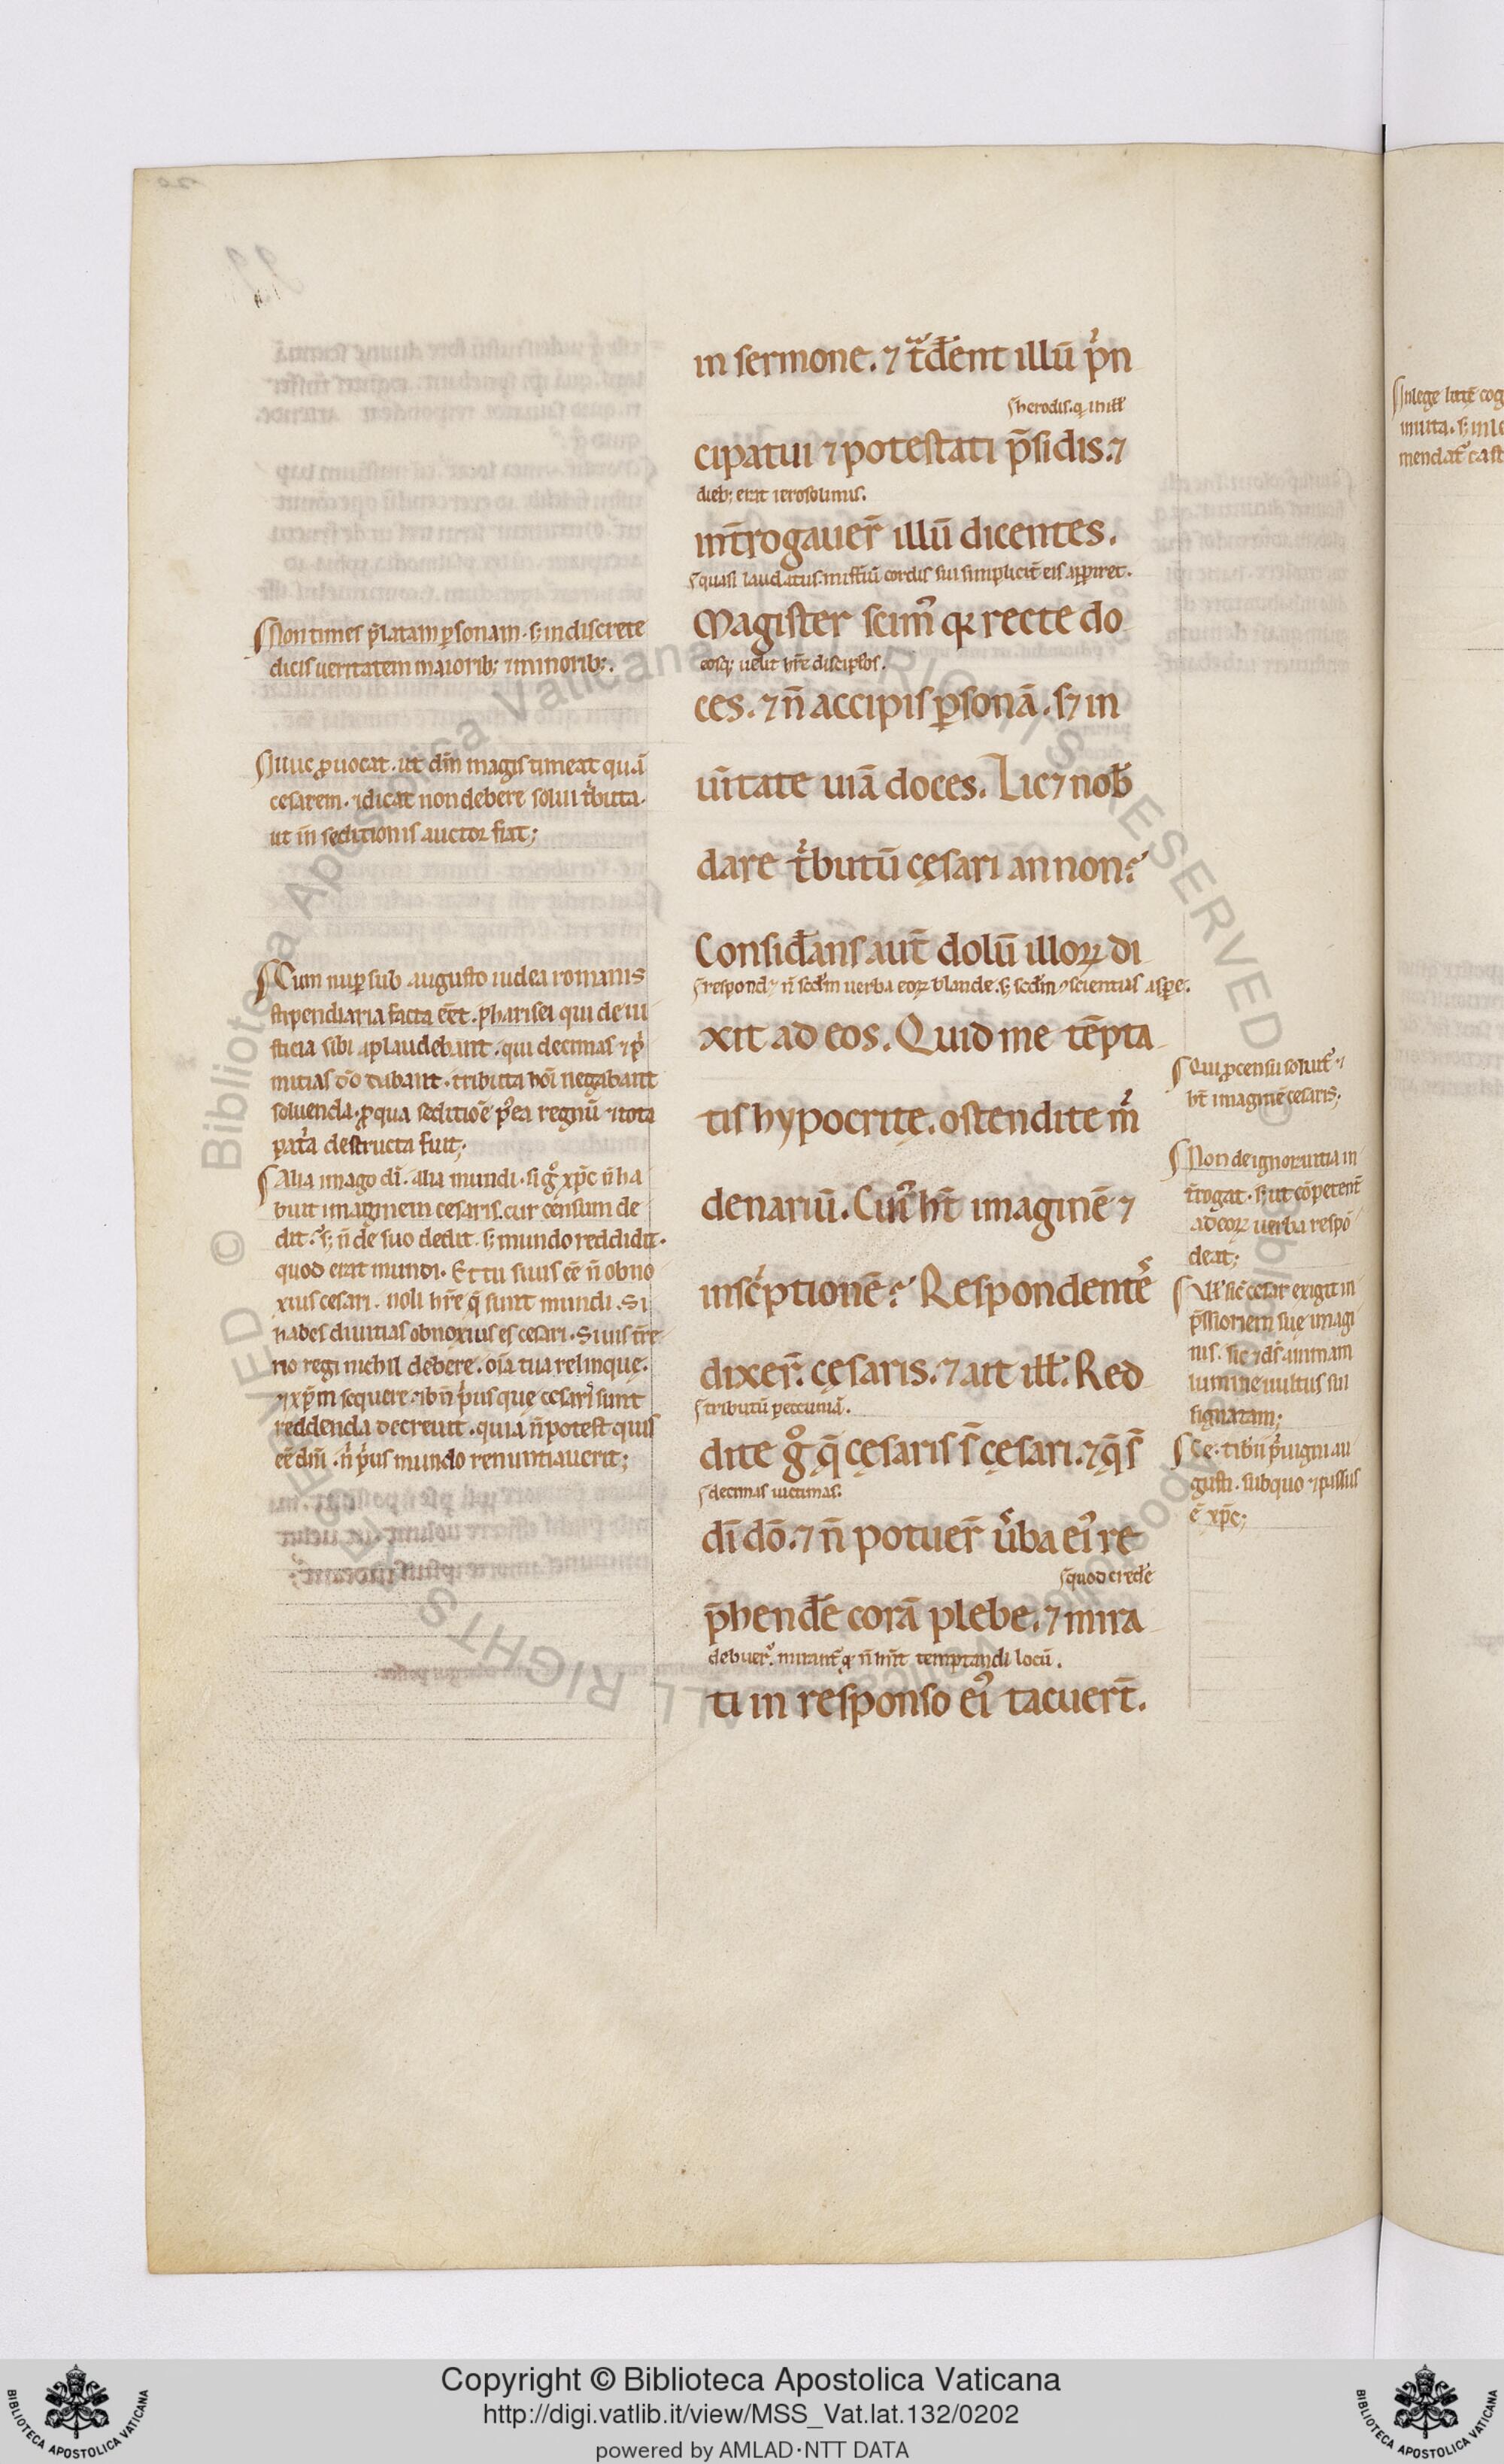 in sermone. ⁊ t̄ᵃdēent illū pͥn
ſ herodis. q̣ in illꝭ
cipatui ⁊ potestati p̄sidis. ⁊
dieb; erat ierosolimis.
int̄rogauer̄ illū dicentes.
ſ quasi laudatus misteriū cordis sui simplicit̄ eis aperiret.
Magister scim᾿ qꝛ recte do
eosq; uelit hr̄e discipl̄os.
ces. ⁊ n̄ accipis ꝑsonā. s⁊ in
uītate uiā doces. Lic⁊ nob̄
dare tͥbutū cęsari an non?
Considans aut̄ dolū illoꝝ di
ſ respond⁊ n̄ scd̄m uerba eoꝝ blande. s; scd̄m ↄscientias aspe.
xit ad eos. Quid me tēpta
tis hypocritę. ostendite mͥ
denariū. Cui᾿ ht̄ imaginē ⁊
inscͥptionē? Respondentē᾿
dixer̄. cęsaris. ⁊ ait ill̄. Red
ſ tributū peccuniā.
dite gͦ q̄ cęsaris s̄ cęsari. ⁊ q̄ s̄
ſ decimas uictimas.
dī dō. ⁊ n̄ potuer̄ u̾ba ei᾿ re
ſ quod crede
p̄hendē corā plebe. ⁊ mira
debuer̄. mirant᾿ qꝛ n̄ inuēit temptandi locū.
ti in responso ei᾿ tacuert̄.
ſ Non times p̄latam ꝑsonam. s; indiscrete
dicis ueritatem maiorib; ⁊ minorib;.
ſ Illuc ꝓuocat. ut dm̄ magis timeat quā
cesarem. ⁊ dicat non debere solui tͥbuta.
ut in seditionis auctor fiat;
ſ Cum nuꝑ sub augusto iudea romanis
stipendiaria facta eēt. pharisei qui de iu
sticia sibi aplaudebant. qui decimas ⁊ pͥ
mitias dō dabant. tributa hōi negabant
soluenda. ꝓ qua seditioē p᾿ea regnū ⁊ tota
patͥa destructa fuit;
ſ Alia imago dī. alia mundi. si gͦ xp̄c n̄ ha
buit imaginem cesaris. cur censum de
dit. s; n̄ de suo dedit. s; mundo reddidit.
quod erat mundi. Et tu siuis eē n̄ obno
xius cesari. noli hr̄e q̄ sunt mundi. Si
habes diuitias obnoxius es cesari. Si uis tr̄e
no regi nichil debere. oīa tua relinque.
⁊ xp̄m sequere. ⁊ b̄n pͥus que cesari sunt
reddenda decreuit. quia n̄ potest quis
eē dn̄i. n̄ pͥus mundo renuntiauerit;
ſ Qui ꝓ censu soluit᾿. ⁊
ht̄ imaginē cesaris;
ſ Non de ignorantia in
t̄rogat. s; ut cōpetent̄
ad eoꝝ uerba respō
deat;
ſ Vl̄ sic̄ cesar exigit in
p̄ssionem sue imagi
nis. sic ⁊ ds̄ animam
lumine uultus sui
signatam;
ſ Ce. tib̄ii pͥuigni au
gusti. sub quo ⁊ passus
ē xp̄c;
ſ In lege
Copyright © Biblioteca Apostolica Vaticana
http://digi.vatlib.it/view/MSS_Vat.lat.132/0202
powered by AMLAD·NTT DATA
BIBLIOTECA APOSTOLICA VATICANA
BIBLIOTECA APOSTOLICA VATICANA